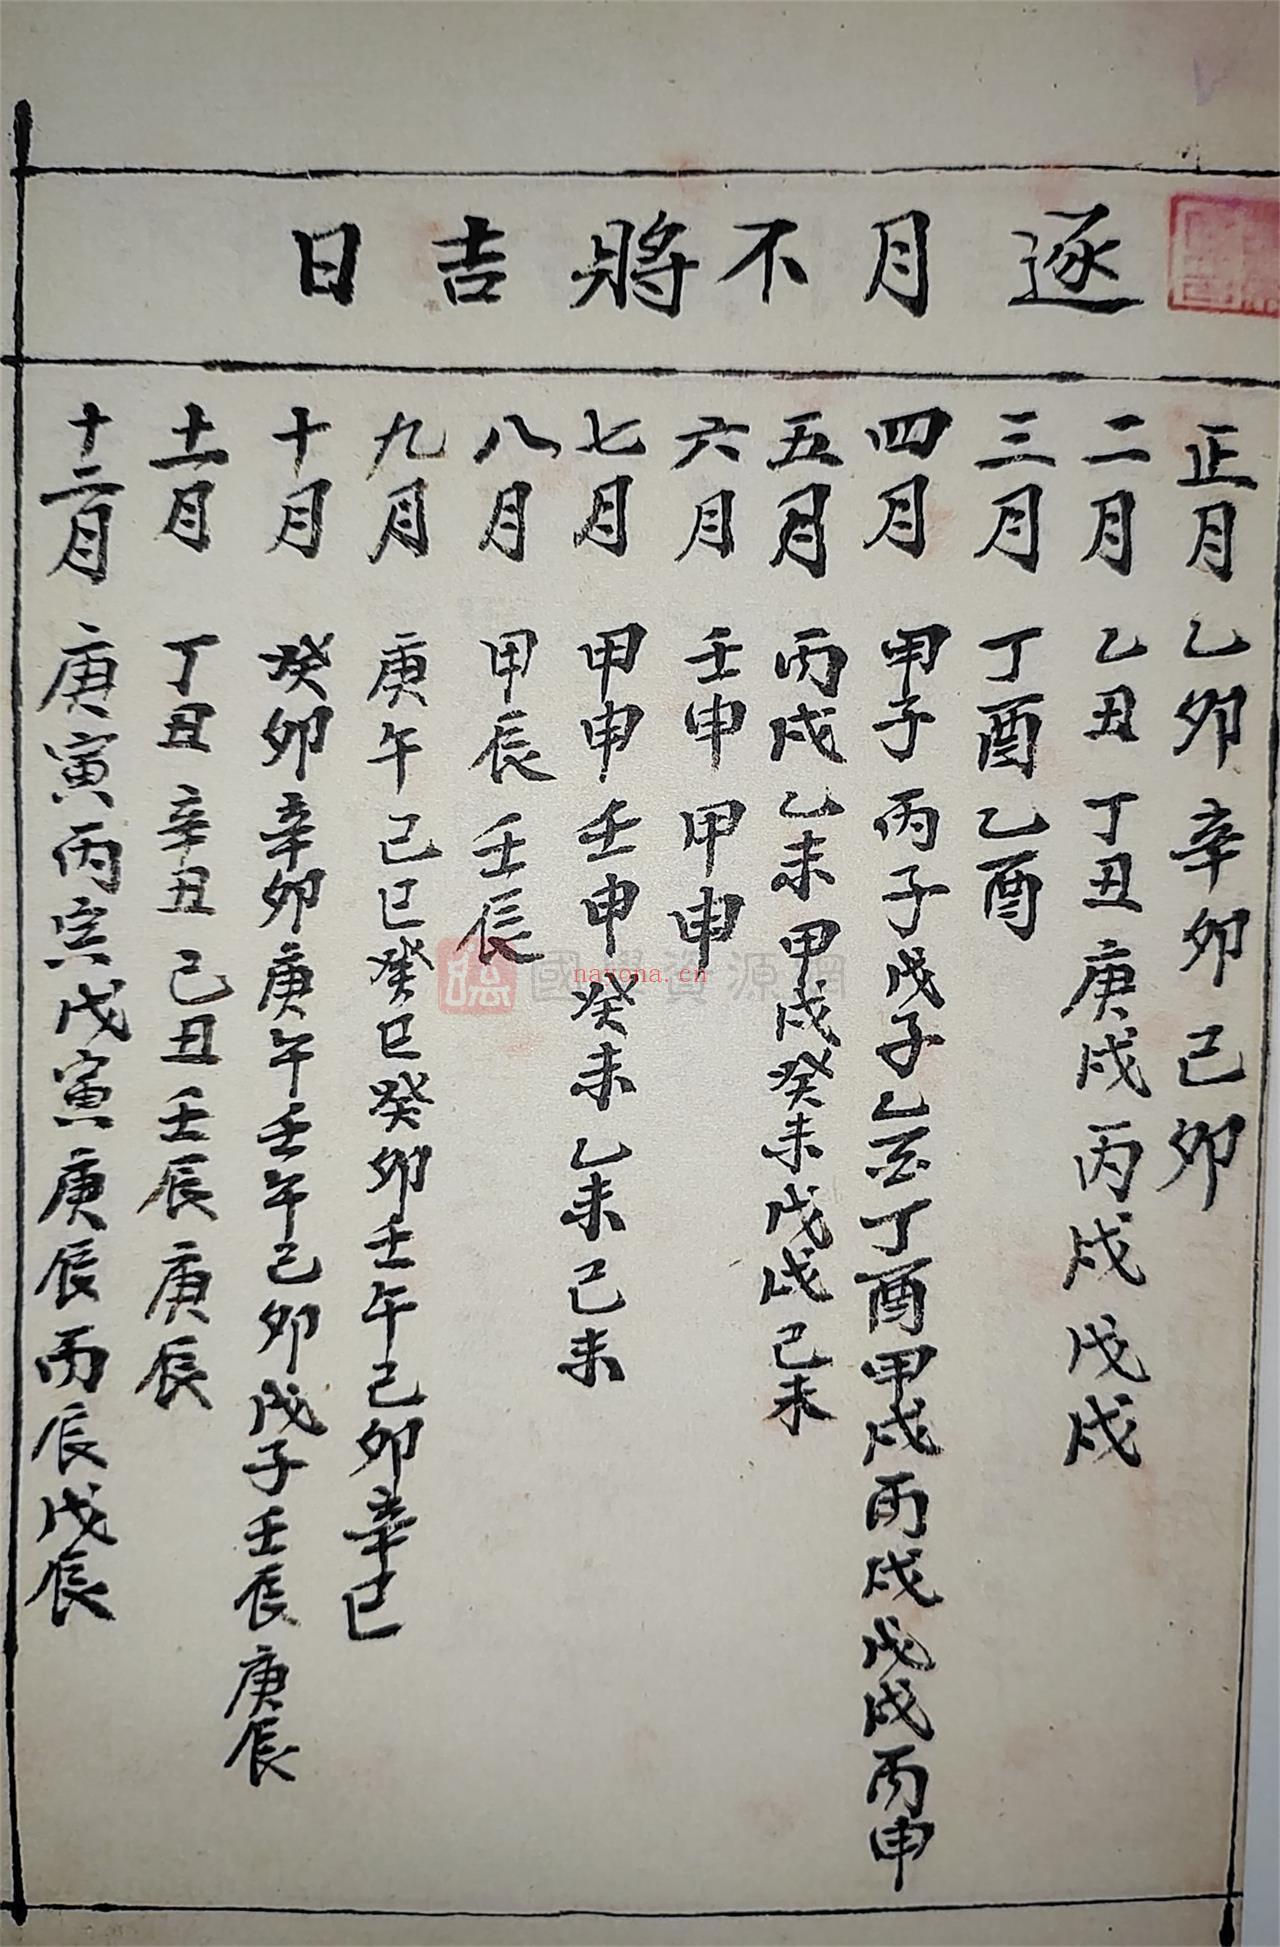 逐月不將吉日
正月 乙卯 辛卯 己卯
二月 乙丑 丁丑 庚戌 丙戌 戊戌
三月 丁酉 乙酉
四月 甲子 丙子 戊子 乙酉 丁酉 甲戌 丙戌 戊戌 丙申
五月 丙戌 乙未 甲戌 癸未 戊戌 己未
六月 壬申 甲申
七月 甲申 壬申 癸未 乙未 己未
八月 甲辰 壬辰
九月 庚午 己巳 癸巳 癸卯 壬午 己卯 辛巳
十月 癸卯 辛卯 庚午 壬午 己卯 戊子 壬辰 庚辰
十一月 丁丑 辛丑 己丑 壬辰 庚辰
十二月 庚寅 丙寅 戊寅 庚辰 丙辰 戊辰
國學資源網
nayona.cn